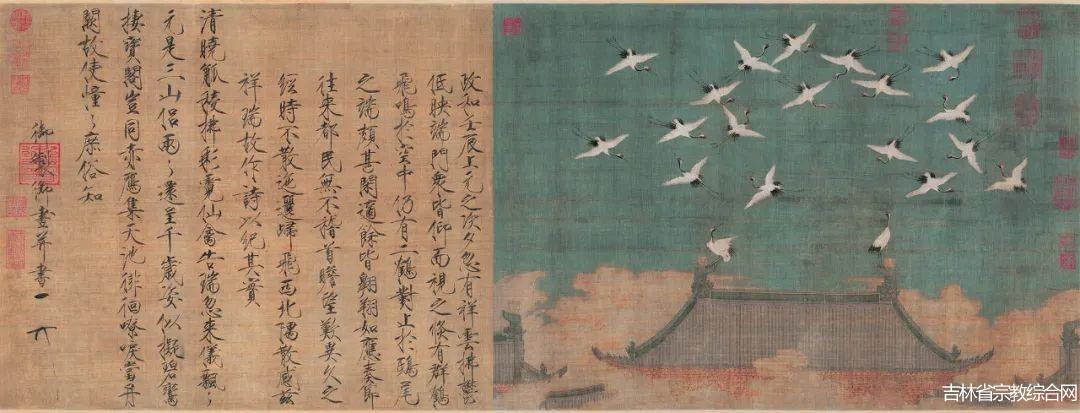 政和壬辰上元之次夕忽有祥雲拂鬱
低映端門眾皆仰而視之倏有群鶴
飛鳴於空中仍有二鶴對止於鴟尾
之端頗甚閑適餘皆翱翔如應奏節
往來都民無不稽首瞻望歎異久之
經時不散迤邐歸飛西北隅散感茲
祥瑞故作詩以紀其實
清曉觚稜拂彩霓仙禽告瑞忽來儀飄〻
元是三山侶兩〻還呈千歲姿似擬碧鸞
棲寶閣豈同赤鴈集天池徘徊嘹唳當丹
闕故使憧〻庶俗知
御製御畫并書
吉林省宗教综合网